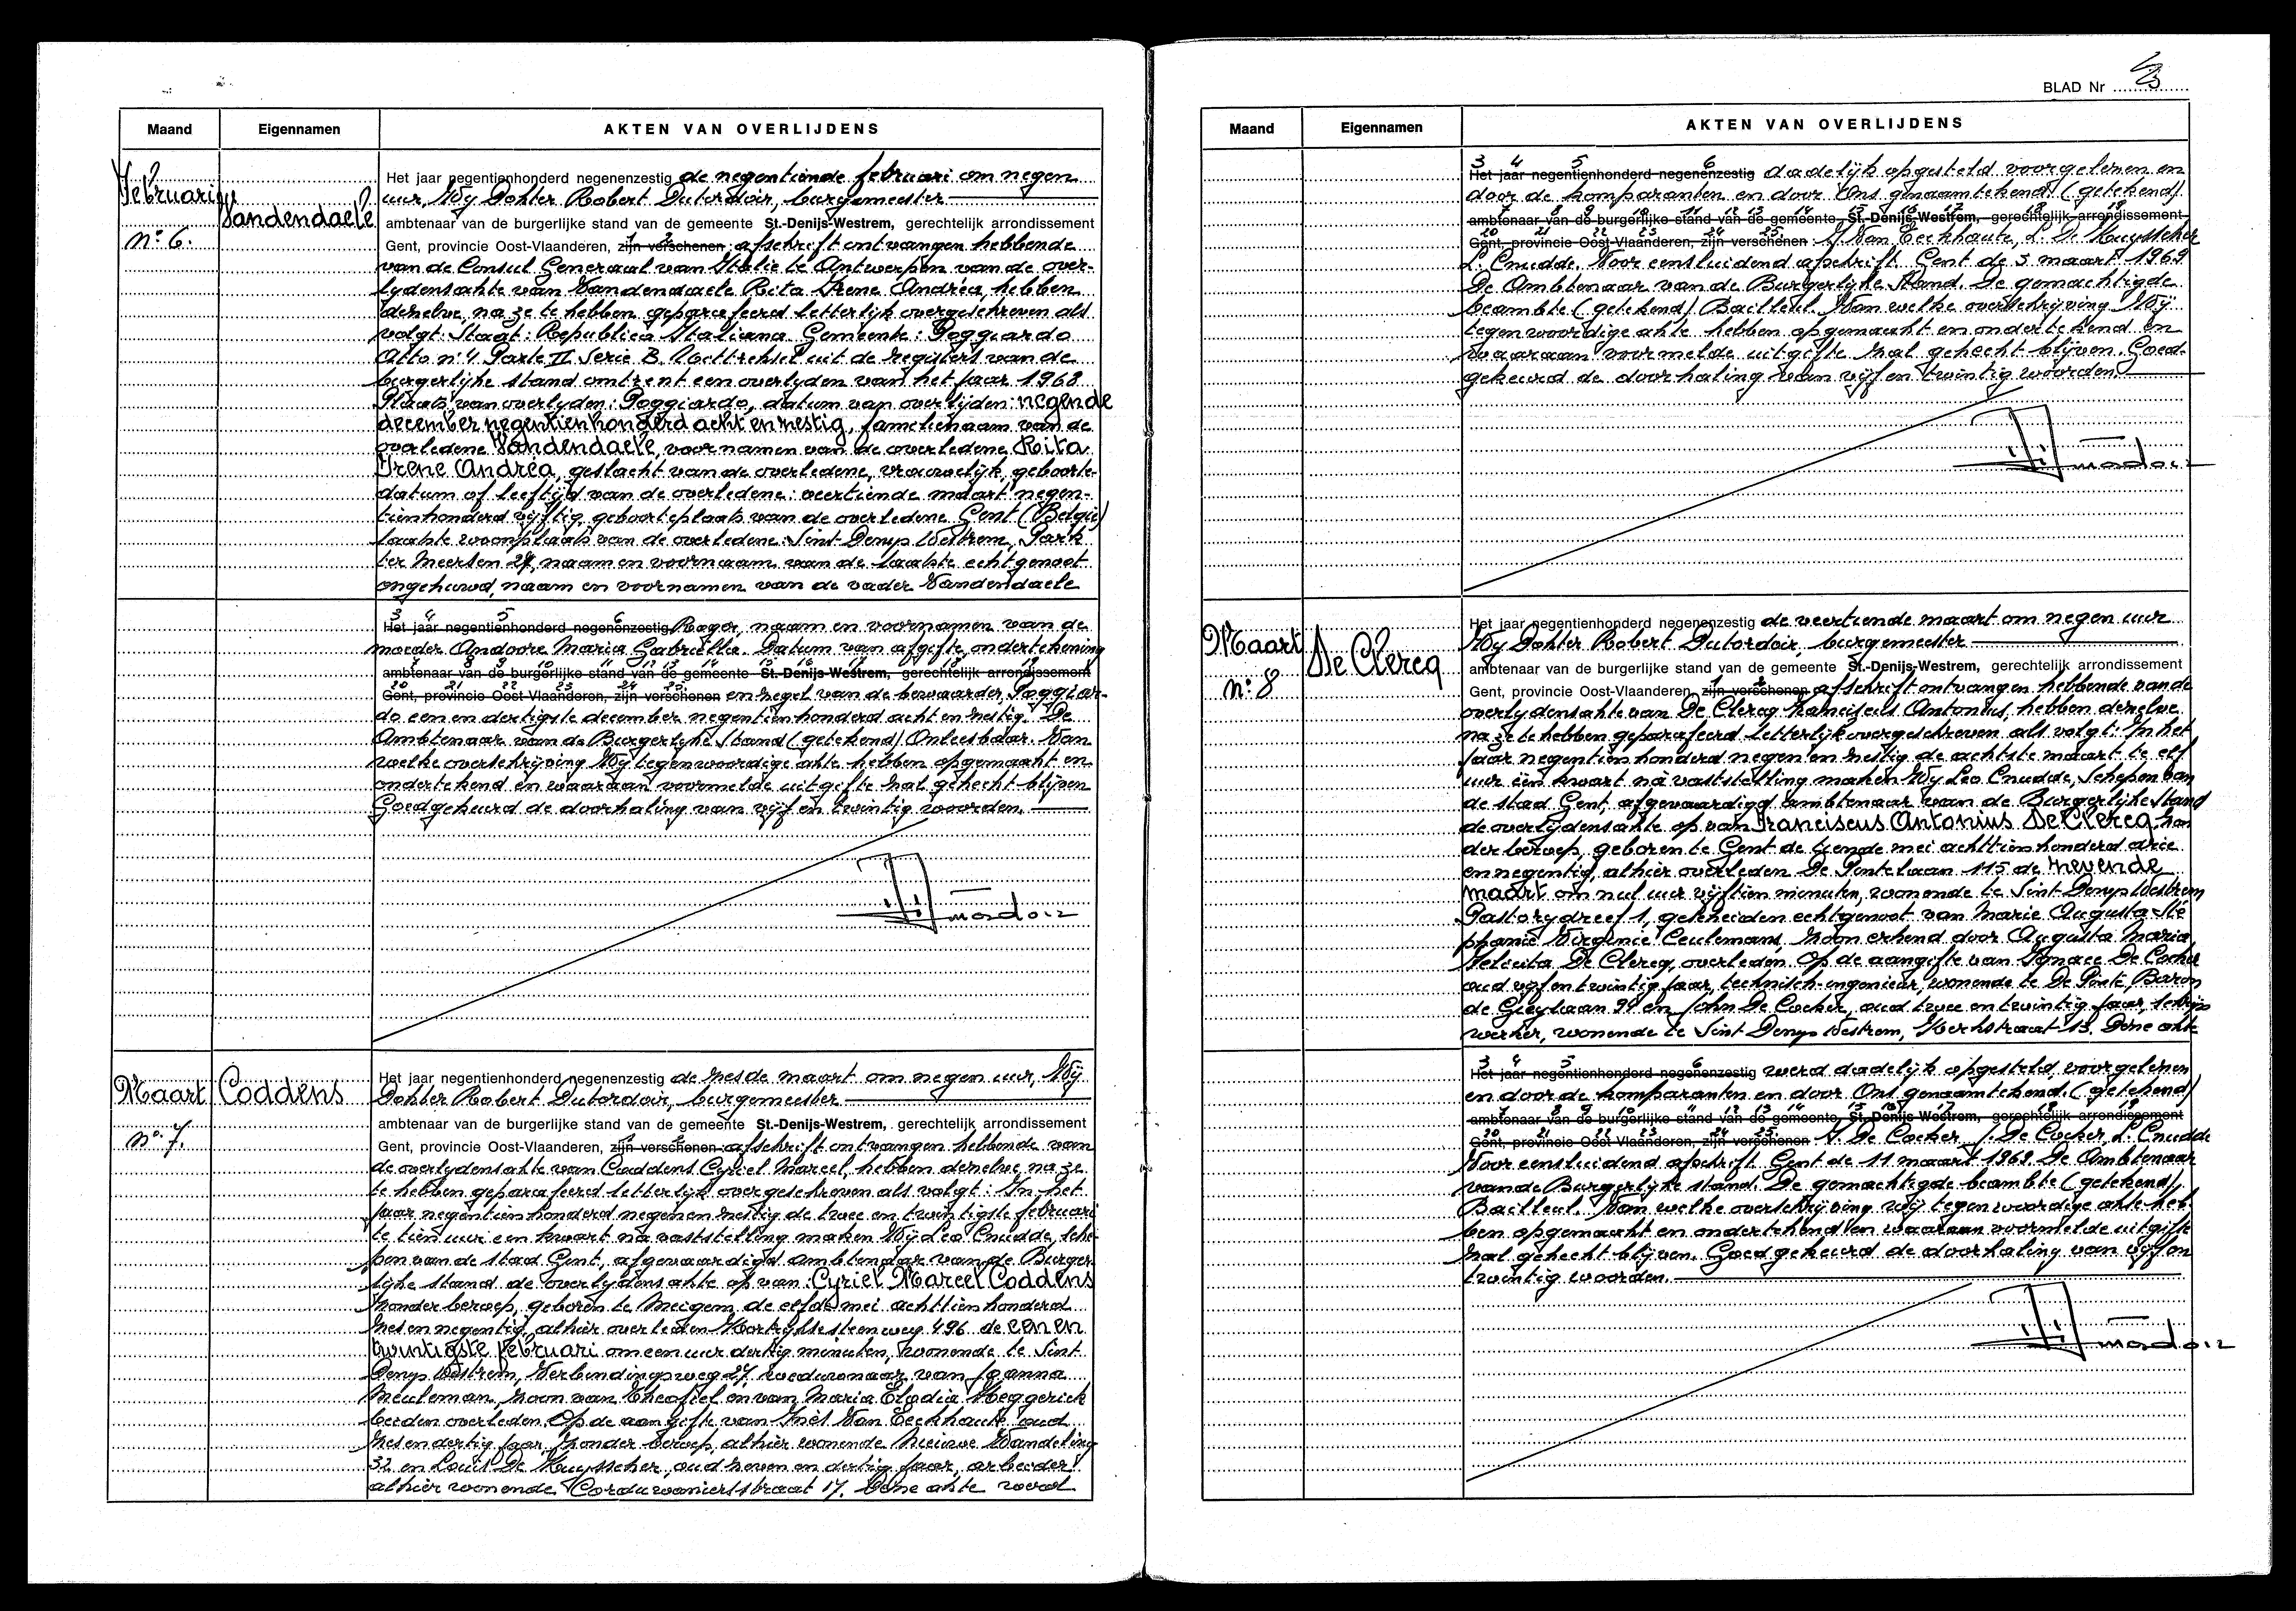 Maand Eigennamen AKTEN VAN OVERLIJDENS
Februari
Vandendaele
n° 6.
Het jaar negentienhonderd negenenzestig de negentiende februari om negen
uur, Wij Dokter Robert Dutordoir, burgemeester
ambtenaar van de burgerlijke stand van de gemeente St.-Denijs-Westrem, gerechtelijk arrondissement
Gent, provincie Oost-Vlaanderen, zijn verschenen : afschrift ontvangen hebbende
van de Consul Generaal van Italie te Antwerpen van de over-
lydensakte van Vandendaele Rita Irene Andréa, hebben
denelve, na ze te hebben geparafeerd letterlijk overgeschreven als
volgt: Staat: Republica Italiana Gemeente: Poggiardo
Atto n° 4 Parte II Serie B. Uittreksel uit de registers van de
burgerlijke stand omtrent een overlyden van het jaar 1968
Plaats van overlyden: Poggiardo, datum van overlijden: negende
december negentienhonderd acht en zestig, familienaam van de
overledene Vandendaele, voornamen van de overledene Rita
Irene Andréa, geslacht van de overledene, vrouwelijk, geboorte-
datum of leeftijd van de overledene: veertiende maart negen-
tienhonderd vijftig, geboorteplaats van de overledene Gent (België)
laatste woonplaats van de overledene: Sint Denys Westrem, Park
ter Meersen 24, naam en voornaam van de laatste echtgenoot
ongehuwd, naam en voornamen van de vader Vandendaele
3 4 5 6
Het jaar negentienhonderd negenenzestig Roger, naam en voornamen van de
moeder Andoore Maria Gabriëlla. Datum van afgifte, ondertekening
7 8 9 10 11 12 13 14 15 16 17 18 19
ambtenaar van de burgerlijke stand van de gemeente St.-Denijs-Westrem, gerechtelijk arrondissement
20 21 22 23 24 25
Gent, provincie Oost-Vlaanderen, zijn verschenen en zegel van de bewaarder, Poggiar-
do een en dertigste december negentienhonderd acht en zestig. De
Ambtenaar van de Burgerlyke Stand (getekend) Onleesbaar. Van
welke overschrijving Wij tegenwoordige akte hebben opgemaakt en
ondertekend en waaraan voormelde uitgifte zal gehecht blijven
Goedgekeurd de doorhaling van vijf en twintig woorden.
Maart Coddens
n° 7.
Het jaar negentienhonderd negenenzestig de zesde maart om negen uur, Wij
Dokter Robert Dutordoir, burgemeester
ambtenaar van de burgerlijke stand van de gemeente St.-Denijs-Westrem, gerechtelijk arrondissement
Gent, provincie Oost-Vlaanderen, zijn verschenen : afschrift ontvangen hebbende van
de overlydensakte van Coddens Cyriel Marcel, hebben denelve na ze
te hebben geparafeerd letterlijk overgeschreven als volgt: In het
jaar negentienhonderd negen en zestig de twee en twintigste februari
te tien uur een kwart na vaststelling maken Wij Leo Cnudde, sche-
pen van de stad Gent, afgevaardigd ambtenaar van de Burger
lijke stand de overlydensakte op van: Cyriel Marcel Coddens
zonder beroep, geboren te Meigem de elfde mei achttienhonderd
zes en negentig, alhier overleden Kortrijksesteenweg 496 de een en
twintigste februari om een uur dertig minuten, wonende te Sint
Denys Westrem, Verbindingsweg 27, weduwnaar van Joanna
Meuleman, zoon van Theofiel en van Maria Elodia Heggerick
beiden overleden. Op de aangifte van Inès Van Eeckhaute oud
zes en dertig jaar, zonder beroep, alhier wonende Nieuwe Wandeling
32 en Louis De Kuysscher, oud zeven en dertig jaar, arbeider
alhier wonende Corduwaniersstraat 17. Deze akte werd
BLAD Nr 3
Maand Eigennamen AKTEN VAN OVERLIJDENS
3 4 5 6
Het jaar negentienhonderd negenenzestig dadelijk opgesteld voorgelezen en
door de komparanten en door Ons genaamtekend. (getekend)
7 8 9 10 11 12 13 14 15 16 17 18 19
ambtenaar van de burgerlijke stand van de gemeente St.-Denijs-Westrem, gerechtelijk arrondissement
20 21 22 23 24 25
Gent, provincie Oost-Vlaanderen, zijn verschenen : I. Van Eeckhaute, L. De Kuysscher
L. Cnudde. Voor eensluidend afschrift. Gent de 5 maart 1969
De Ambtenaar van de Burgerlijke Stand. De gemachtigde
beambte (getekend) Bailleul. Van welke overschrijving Wij
tegenwoordige akte hebben opgemaakt en ondertekend en
waaraan voormelde uitgifte zal gehecht blijven. Goed-
gekeurd de doorhaling van vijf en twintig woorden.
Maart
De Clercq
n° 8
Het jaar negentienhonderd negenenzestig de veertiende maart om negen uur
Wij Dokter Robert Dutordoir, burgemeester
ambtenaar van de burgerlijke stand van de gemeente St.-Denijs-Westrem, gerechtelijk arrondissement
Gent, provincie Oost-Vlaanderen, zijn verschenen afschrift ontvangen hebbende van de
overlydensakte van De Clercq Franciscus Antonius, hebben denelve
na ze te hebben geparafeerd letterlijk overgeschreven als volgt: In het
jaar negentienhonderd negen en zestig de achtste maart te elf
uur één kwart na vaststelling maken Wij Leo Cnudde, Schepen van
de stad Gent, afgevaardigd ambtenaar van de Burgerlijke Stand
de overlijdensakte op van Franciscus Antonius De Clercq, zon
der beroep, geboren te Gent de tiende mei achttienhonderd drie
en negentig, alhier overleden De Pintelaan 115 de zevende
maart om nul uur vijftien minuten, wonende te Sint Denys Westrem
Pastorydreef 1, gescheiden echtgenoot van Marie Augusta Sté
phanie Virginie Ceulemans, zoon erkend door Augusta Maria
Felicita De Clercq, overleden. Op de aangifte van Ignace De Cocker
oud vijf en twintig jaar, technisch-ingenieur, wonende te De Pinte, Baron
de Gieylaan 99 en John De Cocker, oud twee en twintig jaar,
werker, wonende te Sint Denys Westrem, Kerkstraat 13. Deze akte
3 4 5 6
Het jaar negentienhonderd negenenzestig werd dadelijk opgesteld, voorgelezen
en door de komparanten en door Ons genaamtekend. (getekend)
7 8 9 10 11 12 13 14 15 16 17 18 19
ambtenaar van de burgerlijke stand van de gemeente St.-Denijs-Westrem, gerechtelijk arrondissement
20 21 22 23 24 25
Gent, provincie Oost-Vlaanderen, zijn verschenen I. De Cocker, J. De Cocker, L. Cnudde
Voor eensluidend afschrift. Gent de 11 maart 1969. De Ambtenaar
van de Burgerlijke stand. De gemachtigde beambte (getekend)
Bailleul. Van welke overschrijving wij tegenwoordige akte heb-
ben opgemaakt en ondertekend en waaraan voormelde uitgifte
zal gehecht blijven. Goedgekeurd de doorhaling van vijf en
twintig woorden.